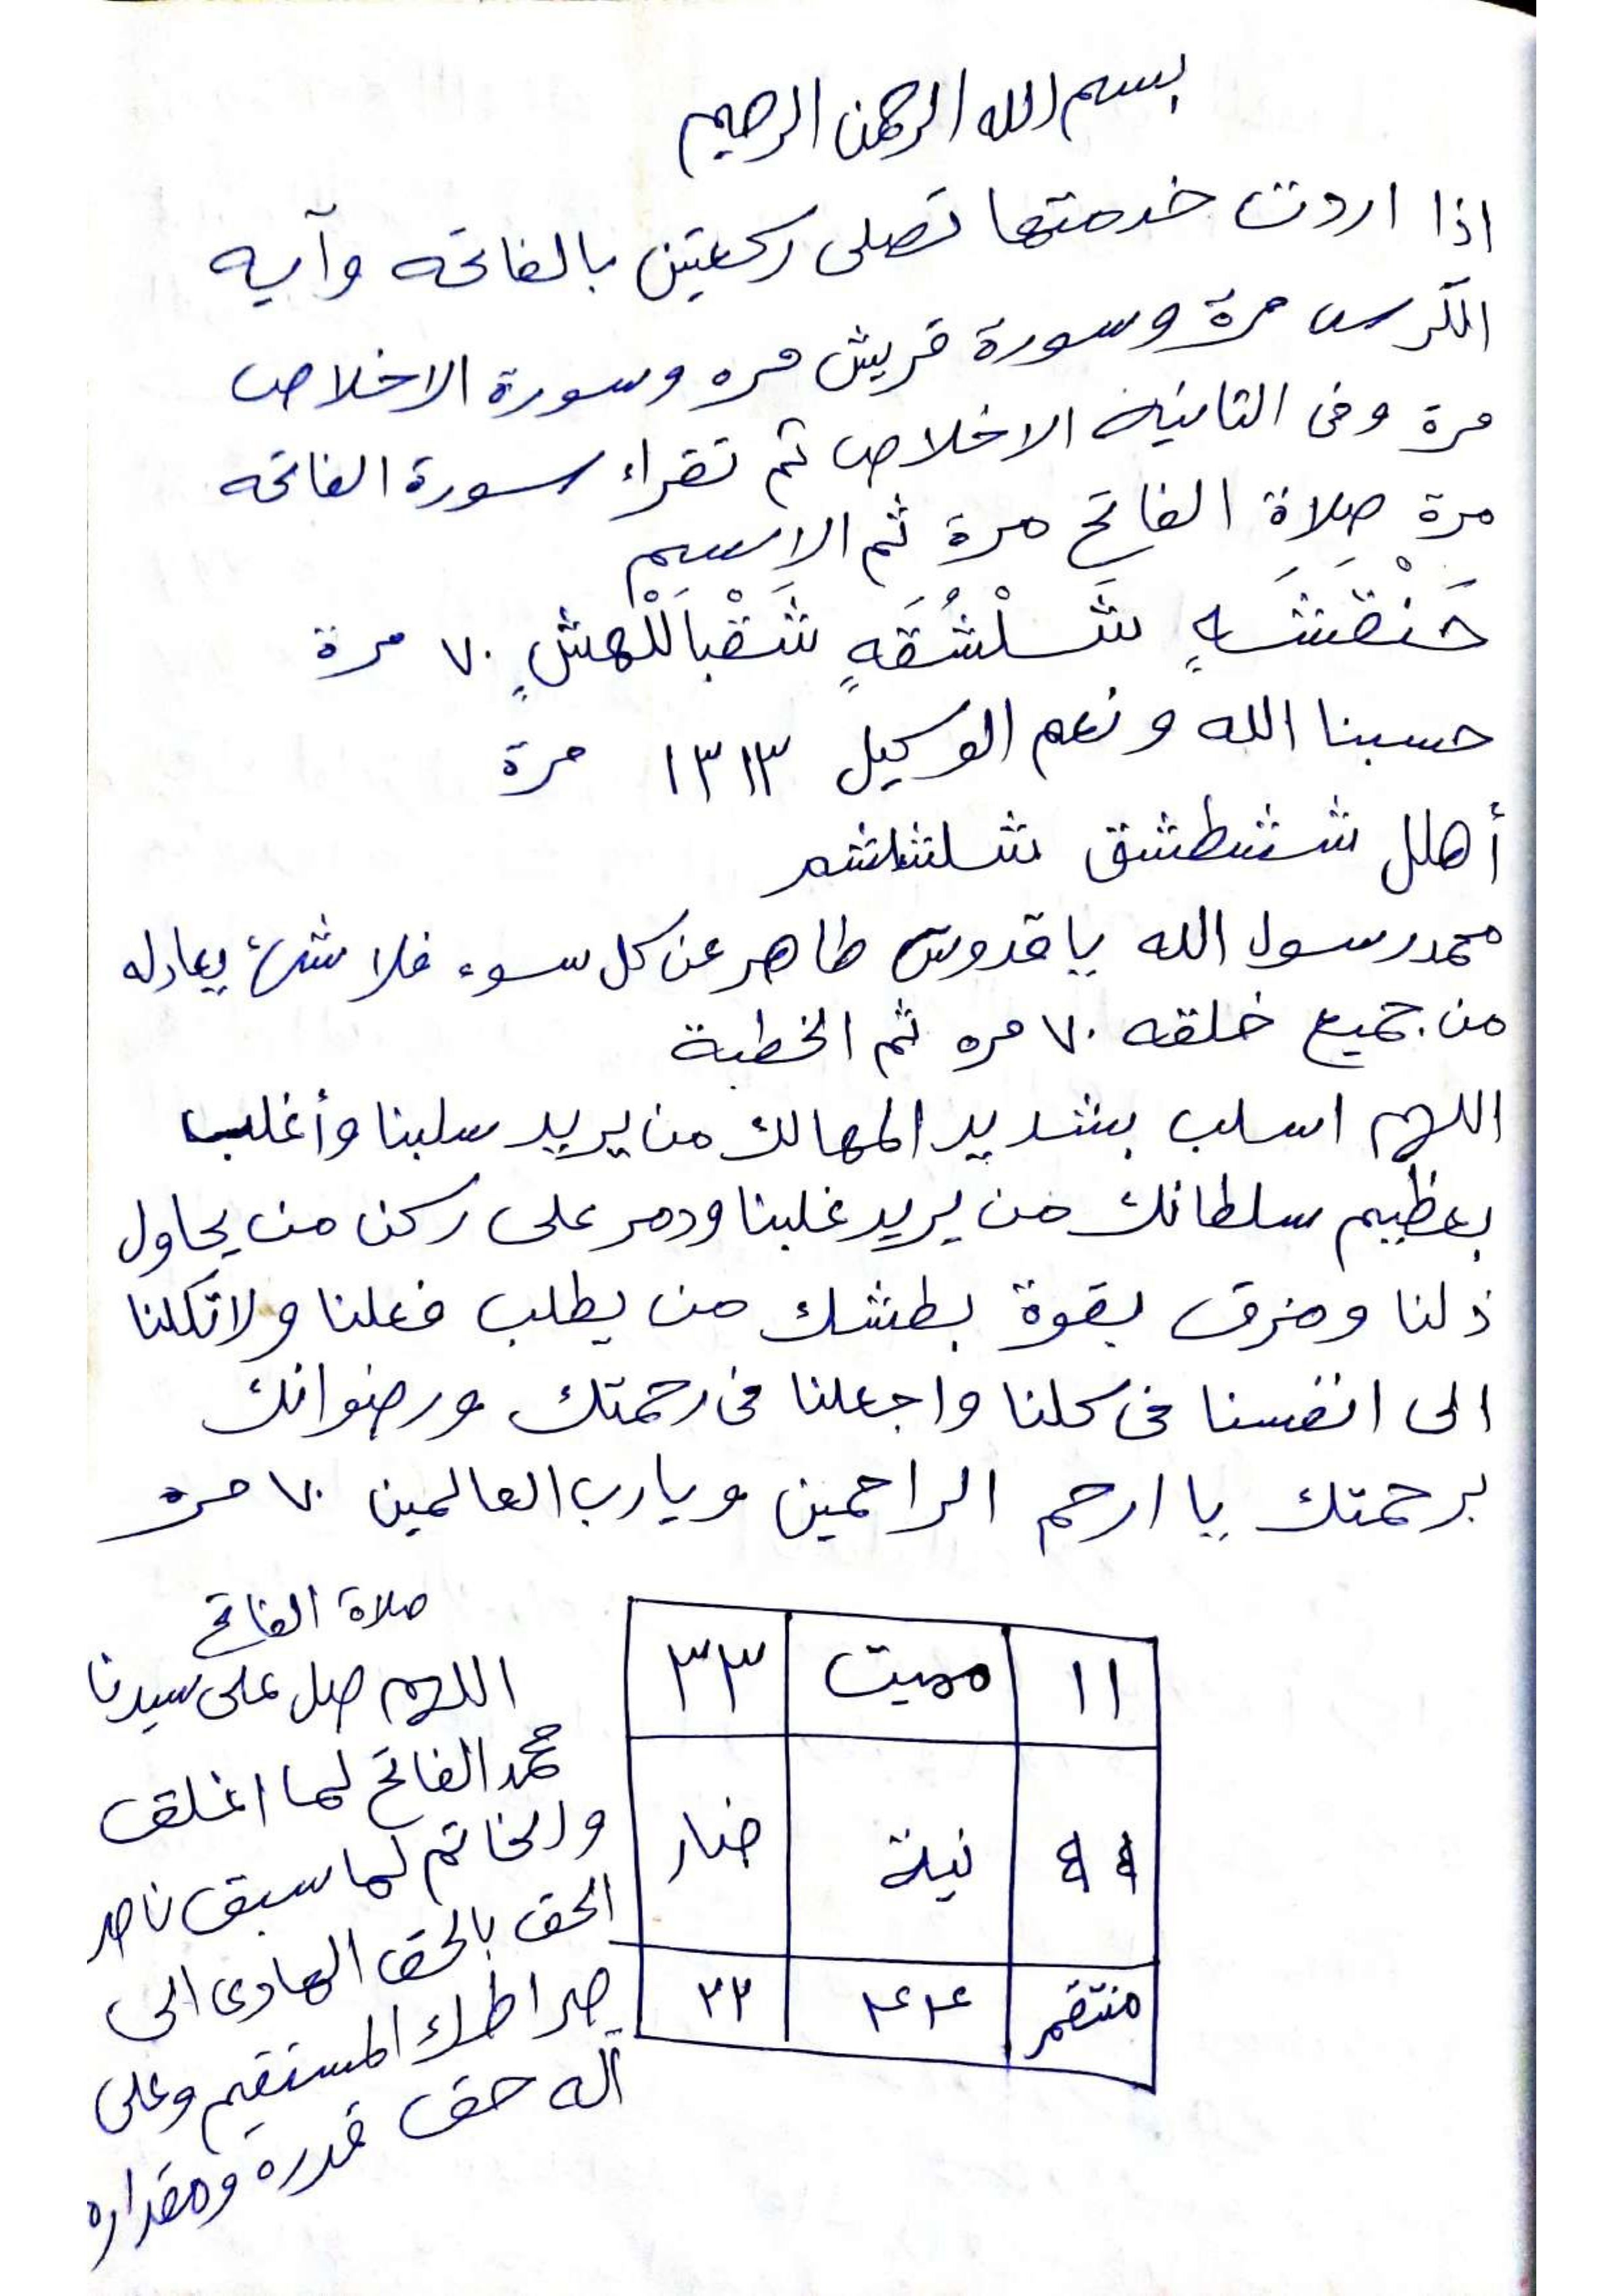 بسم الله الرحمن الرحيم
اذا اردت خدمتها تصلى ركعتين بالفاتحه وآيه
الكرسى مرة وسورة قريش مره وسورة الاخلاص
مرة وفى الثانيه الاخلاص ثم تقراء سورة الفاتحه
مرة صلاة الفاتح مرة ثم الاسم
شَلْشُقَهٍ ٧٠ مرة
حسبنا الله ونعم الوكيل ١٣١٣ مرة
أهلل ششطشق
محمد رسول الله يا قدوس طاهر عن كل سوء فلا شئ يعادله
من جميع خلقه ٧٠ مره ثم الخطبة
اللهم اسلب بشديد المهالك من يريد سلبنا وأغلب
بعظيم سلطانك من يريد غلبنا ودمر على ركن من يحاول
ذلنا ومزق بقوة بطشك من يطلب فعلنا ولا تكلنا
الى انفسنا فى كلنا واجعلنا فى رحمتك ورضوانك
برحمتك يا ارحم الراحمين ويارب العالمين ٧٠ مره
١١ مميت ٣٣
٩٩ نية ضار
منتقم ٤٤ ٢٢
صلاة الفاتح
اللهم صل على سيدنا
محمد الفاتح لما اغلق
والخاتم لما سبق ناصر
الحق بالحق الهادى الى
صراطك المستقيم وعلى
آله حق قدره ومقداره